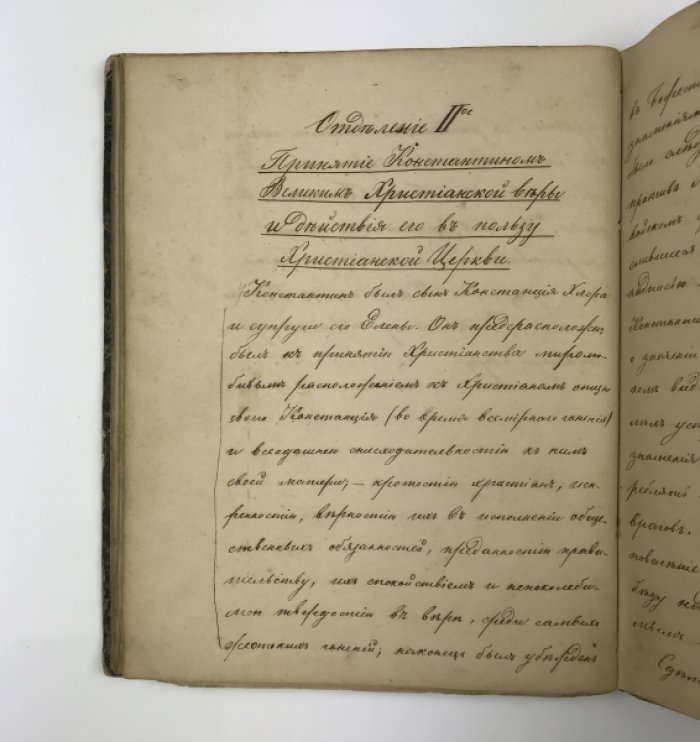 Отдѣленіе II ое
Принятіе Константиномъ
Великимъ Христіанской вѣры
и дѣйствія его въ пользу
Христіанской Церкви.
Константинъ былъ сынъ Констанція Хлора
и супруги его Елены. Онъ предрасположенъ
былъ къ принятію Христіанства миролю-
бивымъ расположеніемъ къ Христіанамъ отца
своего Констанція (во время всемірнаго гоненія)
и всегдашнею снисходительностію къ нимъ
своей матери, — кротостію христіанъ, иск-
ренностію, вѣрностію ихъ въ исполненіи обще-
ственныхъ обязанностей, преданностію прави-
тельству, ихъ спокойствіемъ и непоколеби-
мою твердостію въ вѣрѣ, среди самыхъ
жестокихъ гоненій; наконецъ былъ убѣжденъ
въ
было
противъ
надписью
о значеніи
знаменія
враговъ.